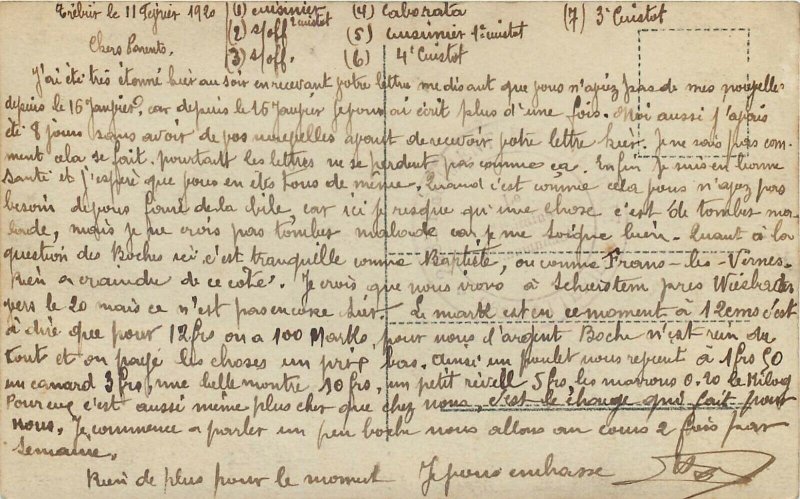 Trébur le 11 Février 1920 (1) cuisinier 2e cuistot (4) Caborata (7) 3e Cuistot
(2) s/off (5) cuisinier 1e cuistot
Chers Parents, (3) s/off. (6) 4e Cuistot
J'ai été très étonné hier au soir en recevant votre lettre me disant que vous n'avez pas de mes nouvelles
depuis le 16 Janvier, car depuis le 16 Janvier je vous ai écrit plus d'une fois. Moi aussi j'avais
de 8 jours sans avoir de vos nouvelles avant de recevoir votre lettre hier. Je ne sais pas com-
ment cela se fait. pourtant les lettres ne se perdent pas comme ça. Enfin je suis en bonne
santé et j'espère que vous en êtes tous de même. Quand c'est comme cela vous n'avez pas
besoin de vous faire de la bile car ici je risque qu'une chose c'est de tomber ma-
lade, mais je ne crois pas tomber malade car je me soigne bien. Quant à la
question des Boches ici c'est tranquille comme Baptiste, ou comme Frans-les-Virnes.
Rien a craindre de ce côté. Je crois que nous irons à Schierstein près Wiesbaden
vers le 20 mais ce n'est pas encore sûr. Le mark est en ce moment à 12cms c'est
à dire que pour 12 frs on a 100 Marks, pour nous l'argent Boche n'est rien du
tout et on paye les choses un prix bas. ainsi un poulet nous revient à 1frs 50
un canard 3frs, une belle montre 10frs, un petit réveil 5frs, les marrons 0.20 le Kilog
Pour eux c'est aussi même plus cher que chez nous, c'est le change qui fait pour
nous. Je commence a parler un peu boche nous allons au cours 2 fois par
semaine.
Rien de plus pour le moment Je vous embrasse